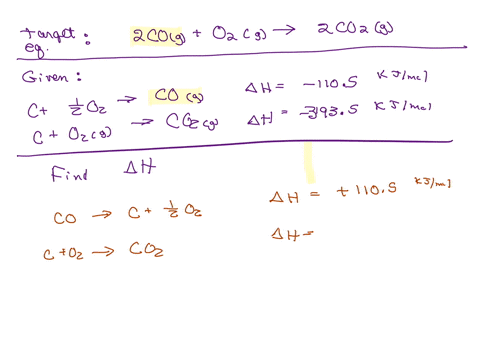 Target: 2CO(g) + O2(g) → 2CO2(g)
eq.
Given:
C+ 1/2O2 → CO(g) ΔH = -110.5 KJ/mol
C + O2(g) → CO2(g) ΔH = -393.5 KJ/mol
Find ΔH
CO → C + 1/2O2 ΔH = +110.5 KJ/mol
C+O2 → CO2 ΔH =